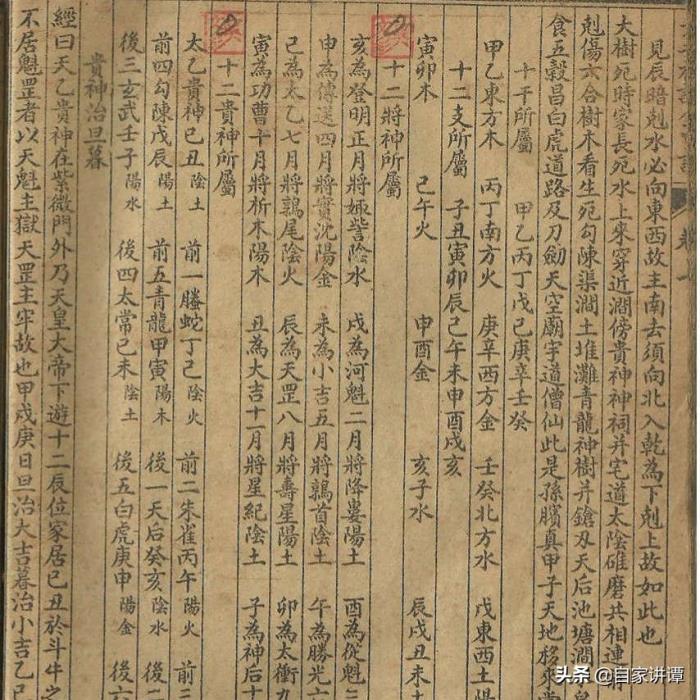 見辰暗剋水必向東西故主南去須向北入乾為下剋上故如此也
大樹死時家長死水上來穿近澗傍貴神神祠并宅道太陰碓磨共相連
剋傷六合樹木看生死勾陳渠澗土堆灘青龍神樹并鎗刄天后池塘澗
食五穀昌白虎道路及刀劒天空廟宇道僧仙此是孫臏真甲子天地移來
十干所屬 甲乙丙丁戊己庚辛壬癸
甲乙東方木 丙丁南方火 庚辛西方金 壬癸北方水 戊東西土陽
十二支所屬 子丑寅卯辰巳午未申酉戌亥
寅卯木 巳午火 申酉金 亥子水 辰戌丑未土
十二將神所屬
亥為登明正月將娵訾陰水 戌為河魁二月將降婁陽土 酉為從魁三
申為傳送四月將實沈陽金 未為小吉五月將鶉首陰土 午為勝光六
巳為太乙七月將鶉尾陰火 辰為天罡八月將壽星陽土 卯為太衝九
寅為功曹十月將析木陽木 丑為大吉十一月將星紀陰土 子為神后十
十二貴神所屬
太乙貴神己丑陰土 前一螣蛇丁巳陰火 前二朱雀丙午陽火 前三
前四勾陳戊辰陽土 前五青龍甲寅陽木 後一天后癸亥陰水 後二
後三玄武壬子陽水 後四太常己未陰土 後五白虎庚申陽金 後六
貴神治旦暮
經曰天乙貴神在紫微門外乃天皇大帝下遊十二辰位家居己丑於斗牛之
不居魁罡者以天魁主獄天罡主牢故也甲戊庚日旦治大吉暮治小吉乙己
头条 @自家讲谭